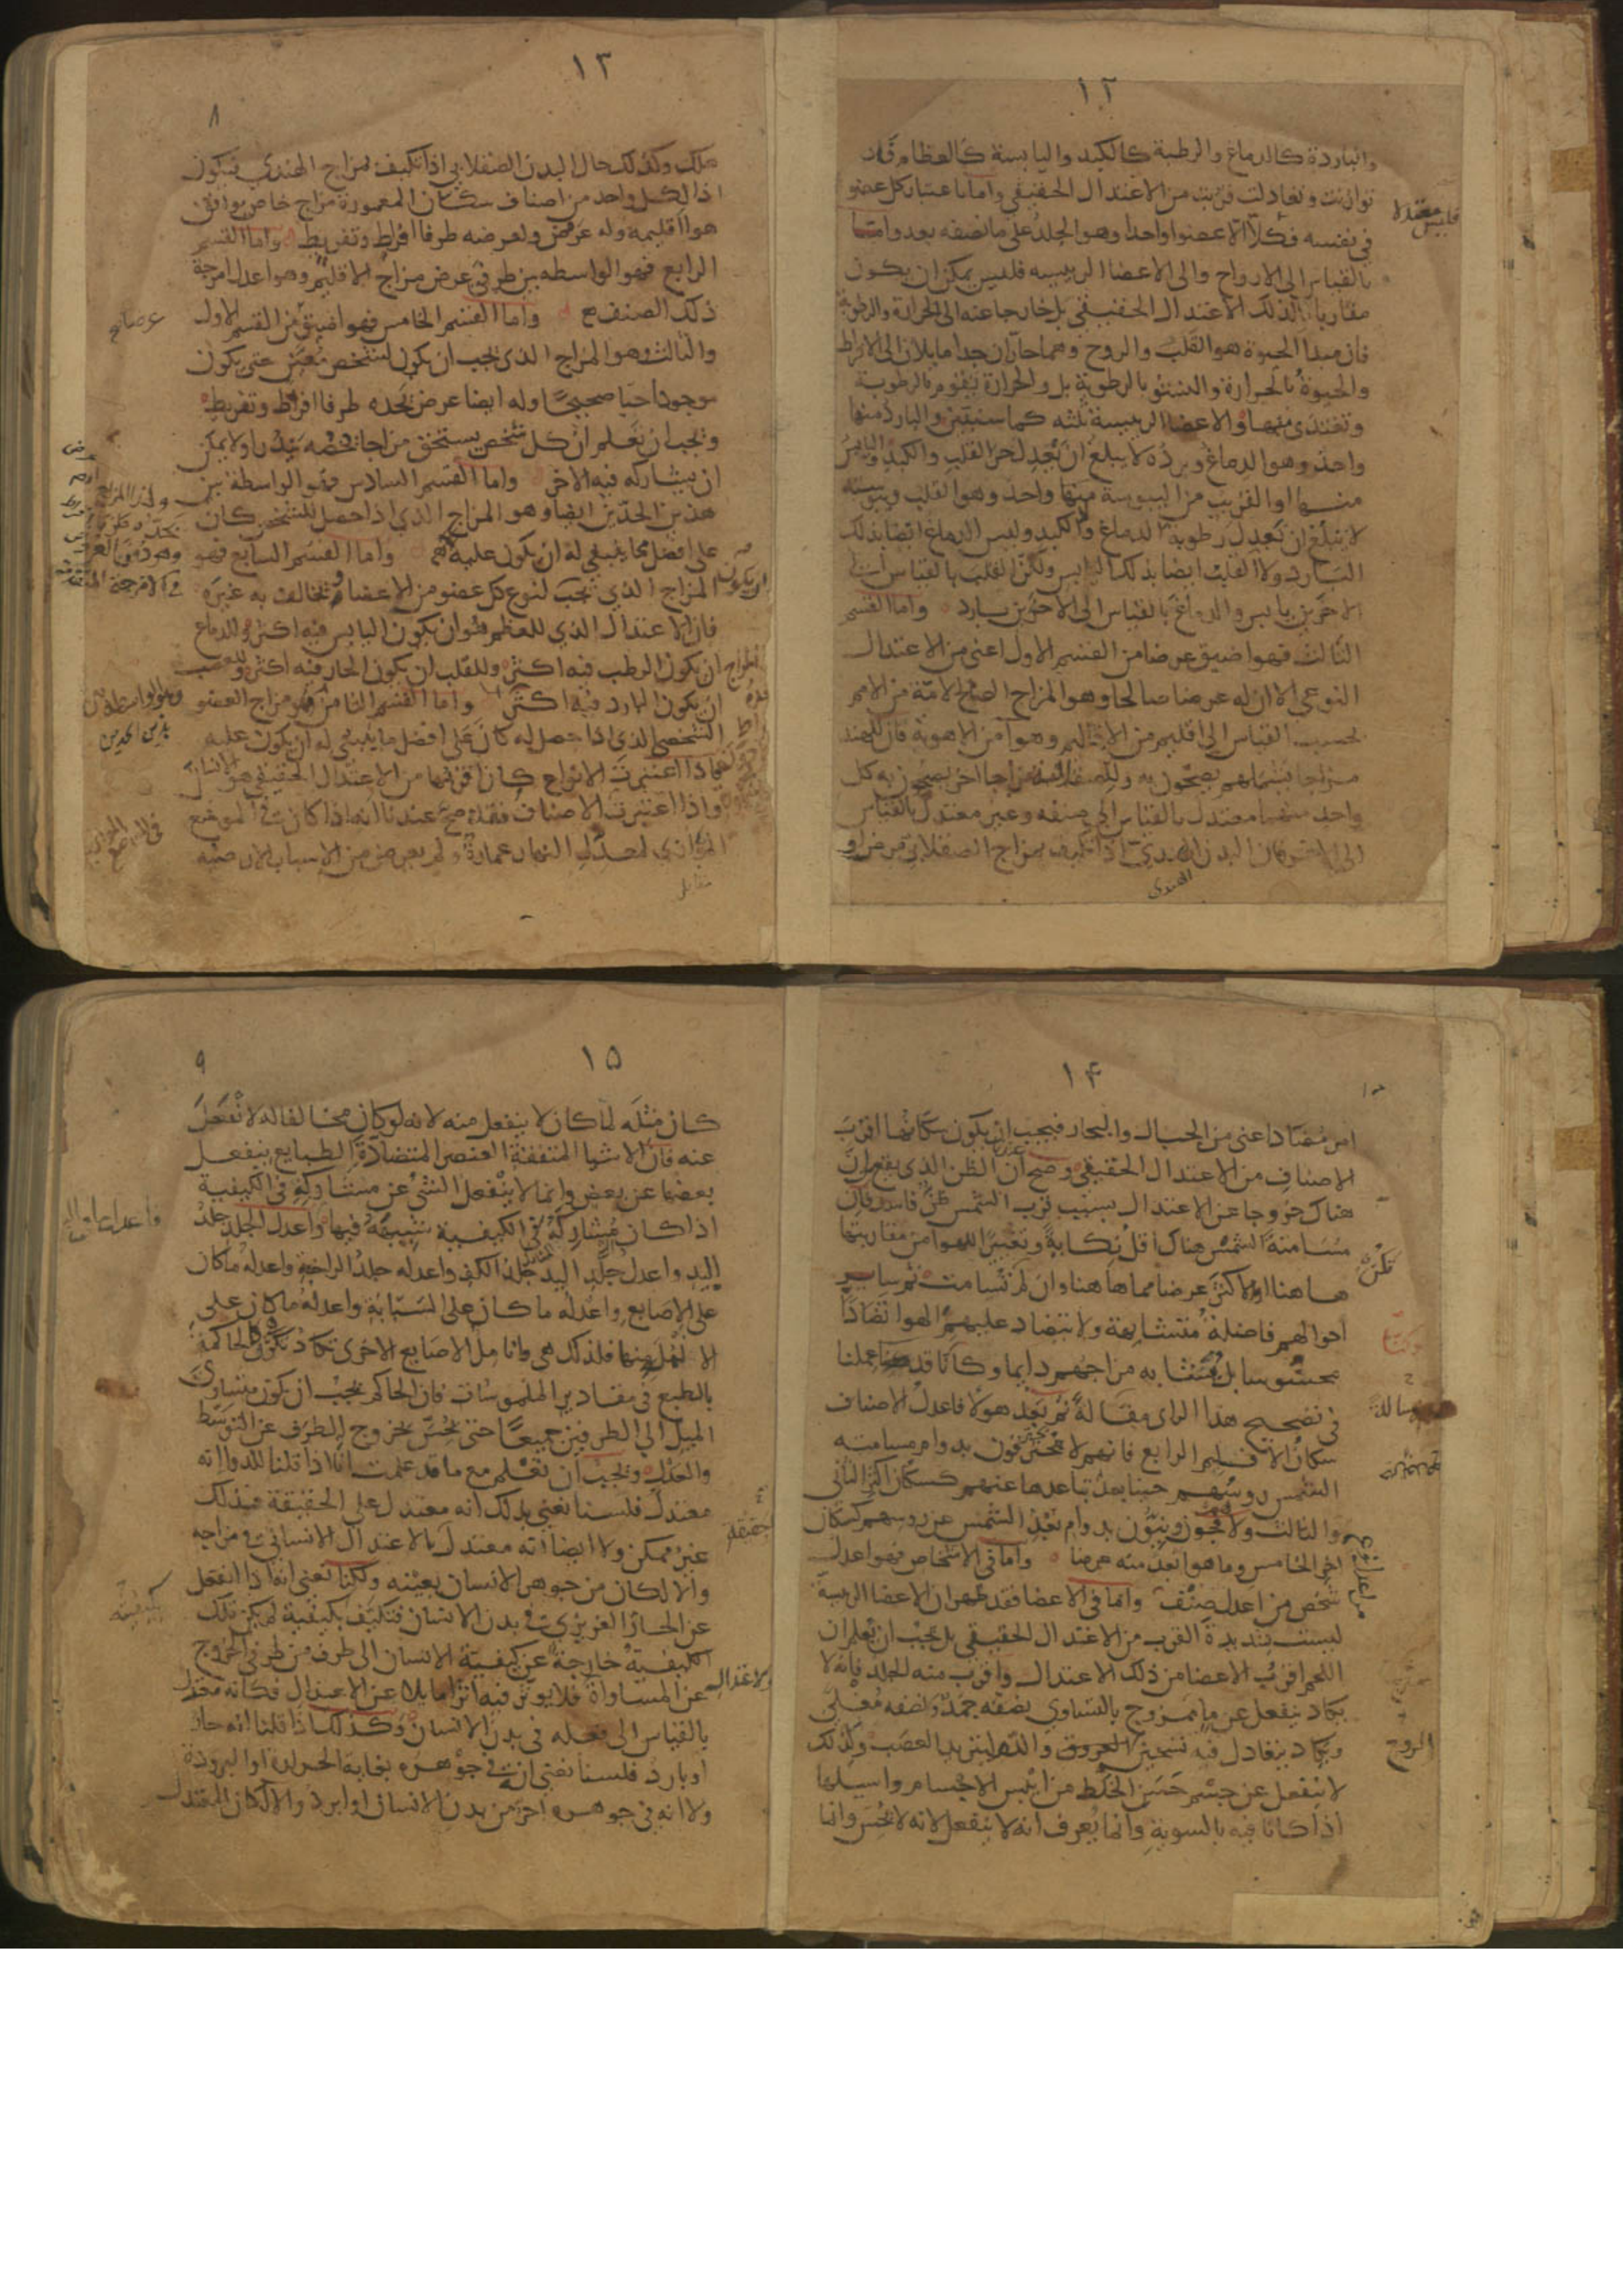 ١٢
والباردة كالدماغ والرطبة كالكبد واليابسة كالعظام فان
توازنت وتعادلت قربت من الاعتدال الحقيقي واما باعتبار كل عضو
في نفسه فكلا الا عضوا واحدا وهو الجلد على ما نصفه بعد واما
بالقياس الى الارواح والى الاعضا الرييسه فليس يمكن ان يكون
مقاربا لذلك الاعتدال الحقيقي بل خارجا عنه الى الحرارة والرطوبة
فان مبدا الحيوة هو القلب والروح وهما حاران جدا مايلان الى الافراط
والحيوة بالحرارة والنشو بالرطوبة بل والحرارة تقوم بالرطوبة
وتغتذى منها والاعضا الرييسة ثلثه كما سنبين والبارد منها
واحد وهو الدماغ وبرده لا يبلغ ان يعدل حر القلب والكبد واليابس
منها او القريب من اليبوسة منها واحد وهو القلب ويبوسته
لا تبلغ ان تعدل رطوبة الدماغ والكبد وليس الدماغ ايضا بذلك
البارد ولا القلب ايضا بذلك اليابس ولكن القلب بالقياس الى
الاخرين يابس والدماغ بالقياس الى الاخرين بارد واما القسم
الثالث فهو اضيق عرضا من القسم الاول اعني من الاعتدال
النوعي الا ان له عرضا صالحا وهو المزاج الصالح لامة من الامم
بحسب القياس الى اقليم من الاقاليم وهوا من الاهوية فان للهند
مزاجا يشملهم يصحون به وللصقالبة مزاجا اخر يصحون به كل
واحد منهما معتدل بالقياس الى صنفه وغير معتدل بالقياس
الى الاخر فان البدن الهندي اذا تكيف بمزاج الصقلابي مرض او
الهندى
١٣
٨
هلك وكذلك حال البدن الصقلابي اذا تكيف بمزاج الهندي فيكون
اذا لكل واحد من اصناف سكان المعمورة مزاج خاص يوافق
هوا اقليمه وله عرض ولعرضه طرفا افراط وتفريط واما القسم
الرابع فهو الواسطه بين طرفي عرض مزاج الاقليم وهو اعدل امزجة
ذلك الصنف واما القسم الخامس فهو اضيق من القسم الاول
والثالث وهو المزاج الذي يجب ان يكون لشخص معين حتى يكون
موجودا حيا صحيحا وله ايضا عرض يحده طرفا افراط وتفريط
ويجب ان تعلم ان كل شخص يستحق مزاجا يخصه يندر او لا يمكن
ان يشاركه فيه الاخر واما القسم السادس فهو الواسطة بين
هذين الحدين ايضا وهو المزاج الذي اذا حصل للشخص كان
على افضل ما ينبغي له ان يكون عليه واما القسم السابع فهو
المزاج الذي يجب لنوع كل عضو من الاعضا ويخالف به غيره
فان الاعتدال الذي للعظم هو ان يكون اليابس فيه اكثر وللدماغ
ان يكون الرطب فيه اكثر وللقلب ان يكون الحار فيه اكثر وللعصب
ان يكون البارد فيه اكثر واما القسم الثامن فهو مزاج العضو
الشخصي الذي اذا حصل له كان على افضل ما ينبغي له ان يكون عليه
فاذا اعتبرت الانواع كان اقربها من الاعتدال الحقيقي هو الانسان
واذا اعتبرت الاصناف فقد صح عندنا انه اذا كان في الموضع
الموازي لمعدل النهار عمارة ولم يعرض من الاسباب الارضيه
١۴
امر مضاد اعني من الجبال والبحار فيجب ان يكون سكانها اقرب
الاصناف من الاعتدال الحقيقي وصح ان الظن الذي يقع ان
هناك خروجا عن الاعتدال بسبب قرب الشمس ظن فاسد فان
مسامتة الشمس هناك اقل نكاية وتغييرا للهوا من مقاربتها
هاهنا او اكثر عرضا مما هاهنا وان لم تسامت ثم ساير
احوالهم فاضلة متشابهة ولا يتضاد عليهم الهوا تضادا
محسوسا بل يتشابه مزاجهم دايما وكنا قد عملنا
في تصحيح هذا الراي مقالة ثم بعد هولا فاعدل الاصناف
سكان الاقليم الرابع فانهم لا محترقون بدوام مسامتة
الشمس روسهم حينا بعد تباعدها عنهم كسكان اكثر الثاني
والثالث ولا فجون ونيون بدوام بعد الشمس عن روسهم كسكان
اخر الخامس وما هو ابعد منه عرضا واما في الاشخاص فهو اعدل
شخص من اعدل صنف واما في الاعضا فقد ظهر ان الاعضا الرييسة
ليست بشديدة القرب من الاعتدال الحقيقي بل يجب ان تعلم ان
اللحم اقرب الاعضا من ذلك الاعتدال واقرب منه الجلد فانه لا
يكاد ينفعل عن ما ممزوج بالتساوي نصفه جمد ونصفه مغلي
ويكاد يتعادل فيه تسخين العروق والدم لتبريد العصب وكذلك
لا ينفعل عن جسم حسن الخلط من ايبس الاجسام واسيلها
اذا كانا فيه بالسوية وانما يعرف انه لا ينفعل لانه لا يحس وانما
١۵
٩
كان مثله لما كان لا ينفعل منه لانه لو كان مخالفا له لانفعل
عنه فان الاشيا المتفقة العنصر المتضادة الطبايع ينفعل
بعضها عن بعض وانما لا ينفعل الشي عن مشاركه في الكيفية
اذا كان مشاركه في الكيفية شبيهه فيها واعدل الجلد جلد
اليد واعدل جلد اليد جلد الكف واعدله جلد الراحة واعدله ما كان
على الاصابع واعدله ما كان على السبابة واعدله ما كان على
الانملة منها فلذلك هي وانامل الاصابع الاخرى تكاد تكون الحاكمة
بالطبع في مقادير الملموسات فان الحاكم يجب ان يكون متساوي
الميل الى الطرفين جميعا حتى يحس بخروج الطرف عن التوسط
والعدل ويجب ان تعلم مع ما قد علمت انا اذا قلنا للدوا انه
معتدل فلسنا نعني بذلك انه معتدل على الحقيقة فذلك
غير ممكن ولا ايضا انه معتدل بالاعتدال الانساني في مزاجه
والا لكان من جوهر الانسان بعينه ولكنا نعني انه اذا انفعل
عن الحار الغريزي في بدن الانسان فتكيف بكيفية لم يكن تلك
الكيفية خارجة عن كيفية الانسان الى طرف من طرفي الخروج
عن المساواة فلا يوثر فيه اثرا مايلا عن الاعتدال فكانه معتدل
بالقياس الى فعله في بدن الانسان وكذلك اذا قلنا انه حار
او بارد فلسنا نعني انه في جوهره بغاية الحرارة او البرودة
ولا انه في جوهره احر من بدن الانسان او ابرد والا لكان المعتدل